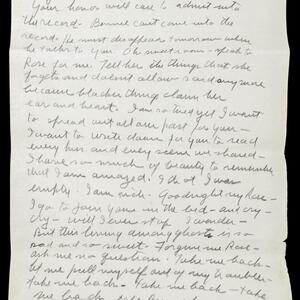 Your honor will care to admit into
the record – Bonnet can't come into the
record. He must disappear tomorrow when
he talks to you. Oh
Rose for me. Tell her the things that she
forgets and doesn't allow
because blacker things claim her
ear and heart. I am so tired yet I want
to spread out all our past for you –
I want to write down for you to read
every hour and every scene we shared –
I have so much of beauty to remember
that I am amazed. I that I was
empty. I am rich. Goodnight my Rose –
I go to join you in the bed – and cry –
cry – will I ever stop I wonder –
But this living among ghosts is so
sad and so sweet. Forgive me Rose –
ask me no question. Take me back –
let me pull myself out of my troubles –
take me back. Take me back – take
me back